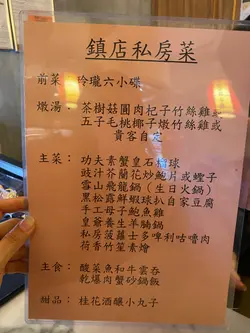 鎮店私房菜
前菜：玲瓏六小碟
燉湯：茶樹菇圓肉杞子竹絲雞或
五子毛桃椰子燉竹絲雞或
貴客自定
主菜：功夫素蟹皇石榴球
豉汁芥蘭花炒鮑片或鱆子
雪山飛龍鍋（生日火鍋）
黑松露鮮蝦球扒自家豆腐
手工母子鮑魚雞
皇爺養生羊腩鍋
私房菠蘿士多啤利咕嚕肉
荷香竹笙素燴
主食：酸菜魚和牛雲吞
乾爆肉蟹砂鍋飯
甜品：桂花酒釀小丸子